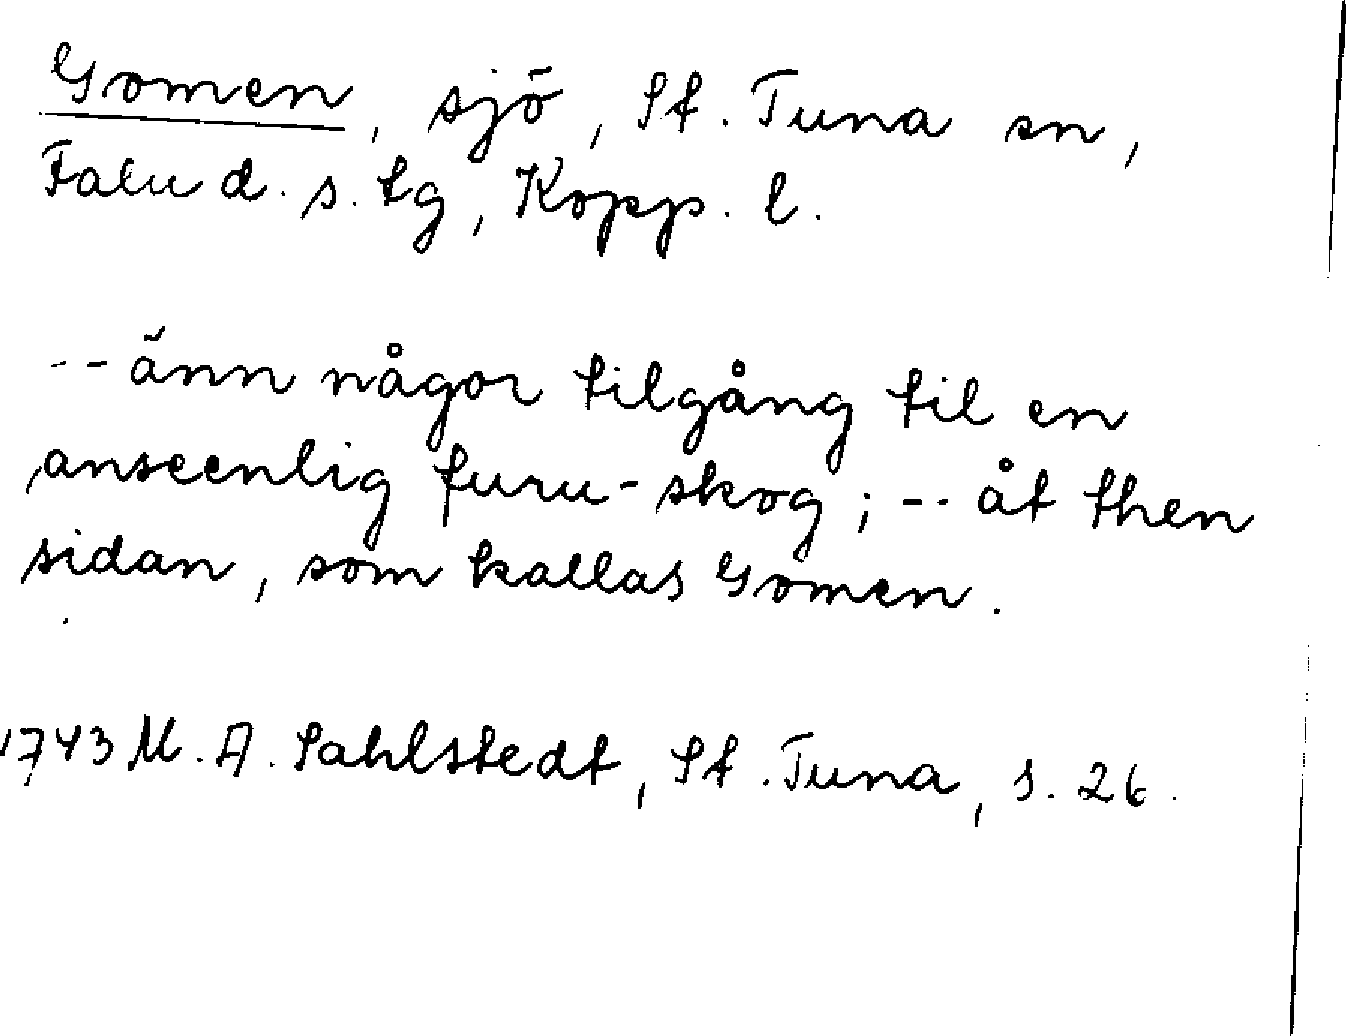 Gomen, sjö, St. Tuna sn,
Falu d. s. tg, Kopp. l.
-- änn någor tilgång til en
anseenlig furu-skog; -- åt then
sidan, som kallas Gomen.
1743 M. A. Sahlstedt, St. Tuna, s. 26.